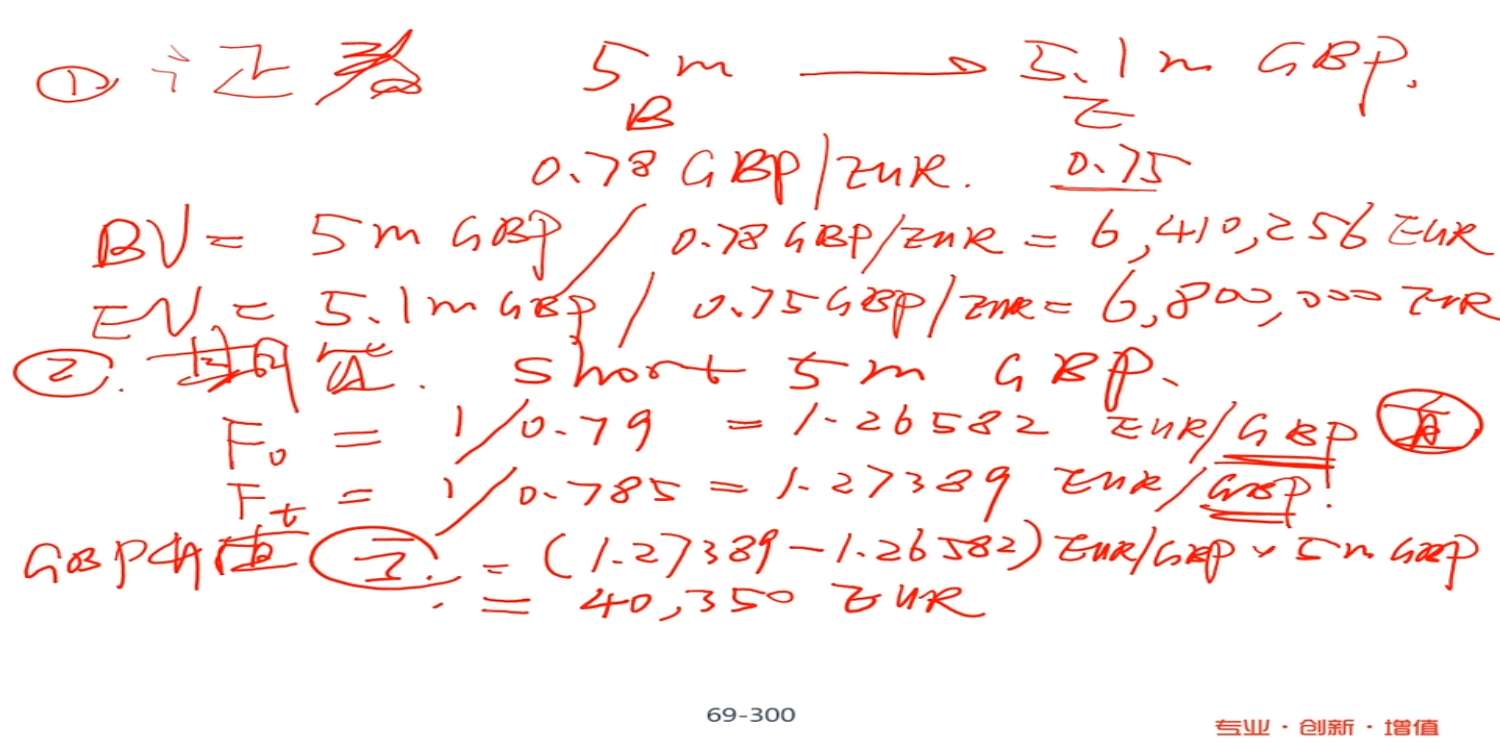 ① 证券 5m → 5.1m GBP.
B E
0.78 GBP/EUR. 0.75
BV = 5m GBP / 0.78 GBP/EUR = 6,410,256 EUR
EV = 5.1m GBP / 0.75 GBP/EUR = 6,800,000 EUR
②. 期货. short 5m GBP.
F₀ = 1/0.79 = 1.26582 EUR/GBP
Fₜ = 1/0.785 = 1.27389 EUR/GBP!
GBP升值 = (1.27389-1.26582) EUR/GBP × 5m GBP
= 40,350 EUR
69-300
专业·创新·增值